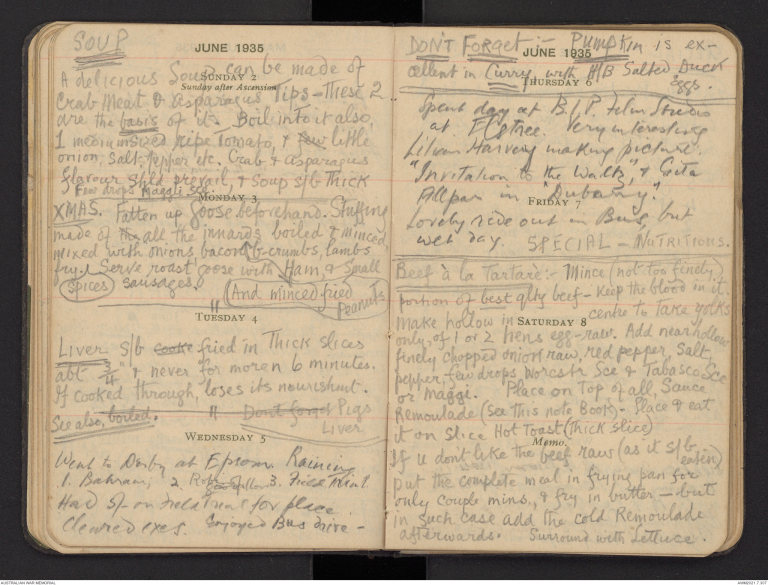 SOUP
JUNE 1935
A delicious Soup can be made of
SUNDAY 2
Sunday after Ascension
Crab Meat & Asparagus Tips - These 2
are the basis of it. Boil into it also,
1 medium sized ripe Tomato, & few little
onion, Salt, pepper etc. Crab & Asparagus
flavour shld prevail, & Soup s/b Thick
Few drops Maggi Sce.
MONDAY 3
XMAS. Fatten up Goose beforehand. Stuffing
made of all the innards boiled & minced,
mixed with onions bacon b-crumbs, lambs
fry. Serve roast goose with Ham, & Small
spices sausages.
And minced fried
Peanuts
TUESDAY 4
Liver s/b cooke fried in Thick slices
abt 3/4" & never for more n 6 minutes.
If cooked through, loses its nourishmt.
See also, boiled. " Dont forget Pigs
Liver
WEDNESDAY 5
Went to Derby at Epsom. Raining.
1. Bahram, 2. Robin Goodfellow 3. Field Trial.
Had 5/- on Field Trial for place.
Cleared exes. Enjoyed Bus drive -
DON'T FORGET :- Pumpkin is ex-
JUNE 1935
cellent in Curry with H/B Salted Duck
eggs.
THURSDAY 6
Spent day at B.I.P. Film Studio
at Elstree. Very interesting
Lilian Harvey making picture.
"Invitation to the Waltz" & Gita
Allpar in "Dubarry".
FRIDAY 7
Lovely ride out in Bus, but
wet day. SPECIAL - NUTRITIONS.
Beef à la Tartare :- Mince (not too finely)
portion of best qlty beef - keep the blood in it.
Make hollow in centre to Take yolks
SATURDAY 8
only, of 1 or 2 hens egg - raw. Add near hollow
finely chopped onion raw, red pepper, Salt,
pepper, few drops Worcstr Sce & Tabasco Sce
or Maggi. Place on Top of all, Sauce
Remoulade (see this note Book) - Place & eat
it on slice Hot Toast (Thick slice)
Memo.
If u dont like the beef raw (as it s/b
eaten)
put the complete meal in frying pan for
only couple mins., & fry in butter - but
in such case add the cold Remoulade
afterwards. Surround with Lettuce.
AUSTRALIAN WAR MEMORIAL